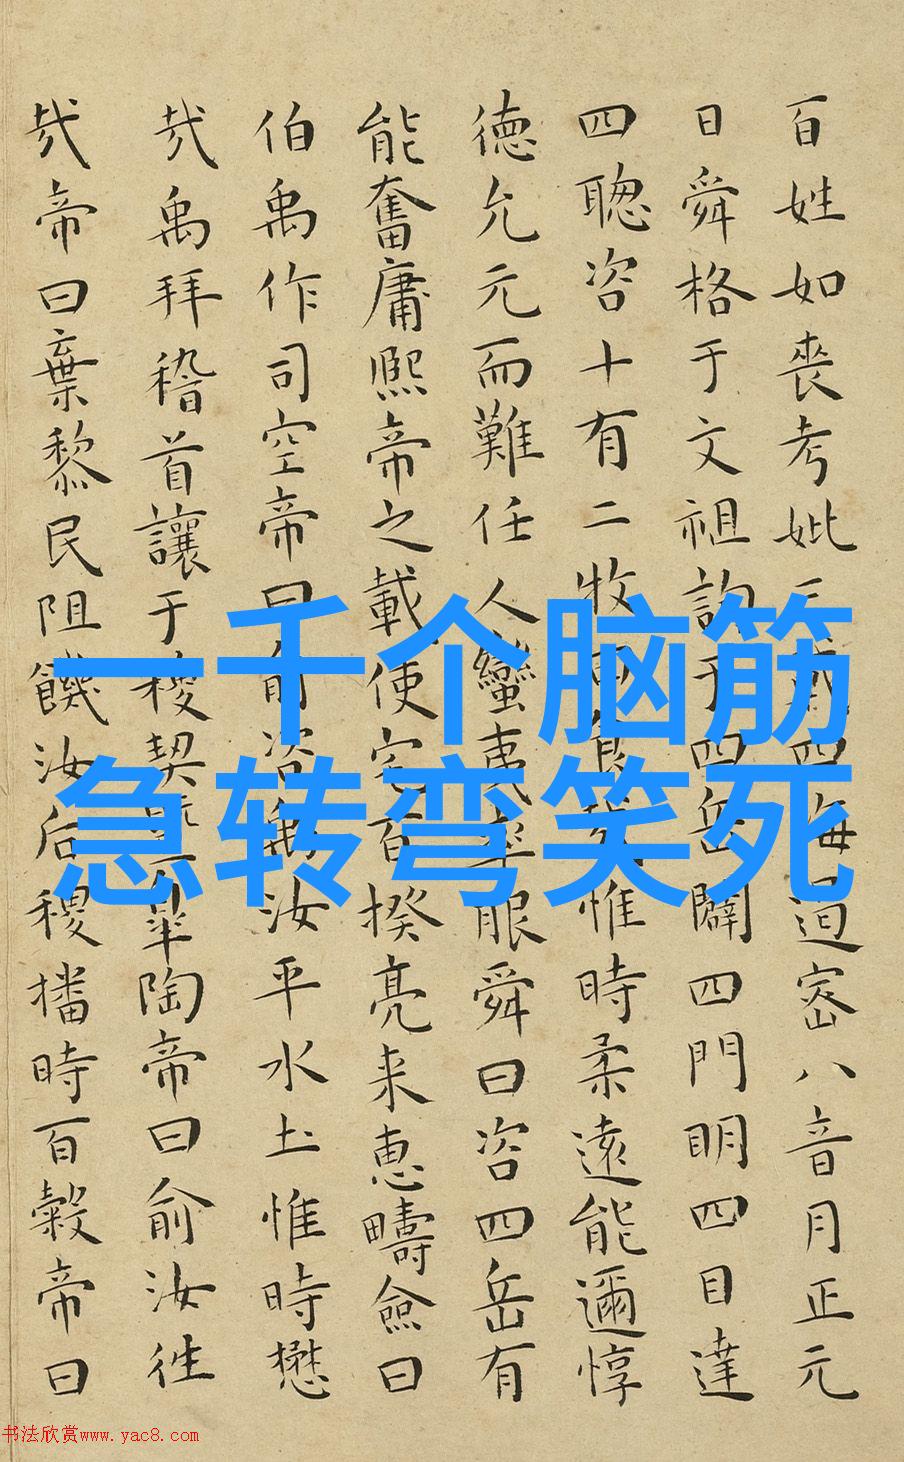 百姓如喪考妣四海遏密八音月正元
日舜格于文祖詢于四岳闢四門明四目達
四聦咨十有二牧曰食哉惟時柔遠能邇惇
德允元而難任人蠻夷率服舜曰咨四岳有
能奮庸熈帝之載使宅百揆亮来惠疇僉曰
伯禹作司空帝曰俞咨禹汝平水土惟時懋
哉禹拜稽首讓于稷契暨皐陶帝曰俞汝往
哉帝曰棄黎民阻饑汝后稷播時百穀帝曰
一千个脑筋
急转弯笑死
书法欣赏www.yac8.com